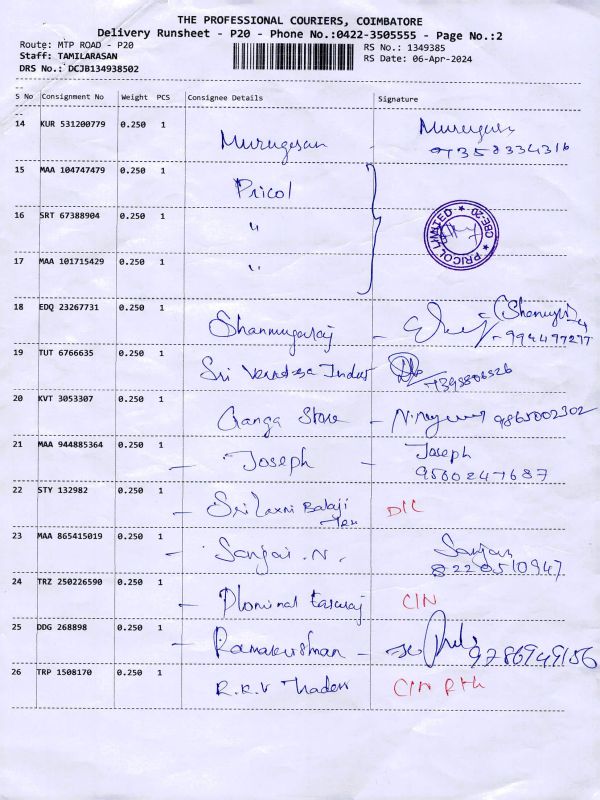 THE PROFESSIONAL COURIERS, COIMBATORE
Delivery Runsheet - P20 - Phone No.:0422-3505555 - Page No.:2
Route: MTP ROAD - P20
RS No.: 1349385
Staff: TAMILARASAN
RS Date: 06-Apr-2024
DRS No.: DCJB134938502
S No Consignment No Weight PCS Consignee Details Signature
14 KUR 531200779 0.250 1 Murugesan - Murugesan
9358334316
15 MAA 104747479 0.250 1 Pricol
16 SRT 67388904 0.250 1 "
PRICOL LIMITED * CBE-20 *
17 MAA 101715429 0.250 1 "
18 EDQ 23267731 0.250 1 Shanmugaraj -
19 TUT 6766635 0.250 1 Sri
20 KVT 3053307 0.250 1 Ganga Store - 9865002302
21 MAA 944885364 0.250 1 - Joseph - Joseph
9560247687
22 STY 132982 0.250 1 - Sri Laxmi Balaji
D/L
23 MAA 865415019 0.250 1 - Sanjai. N. Sanjai
8220510947
24 TRZ 250226590 0.250 1 - CIN
25 DDG 268898 0.250 1 - Ramakrishnan - 9786949156
26 TRP 1508170 0.250 1 R.K.V Traders CIN